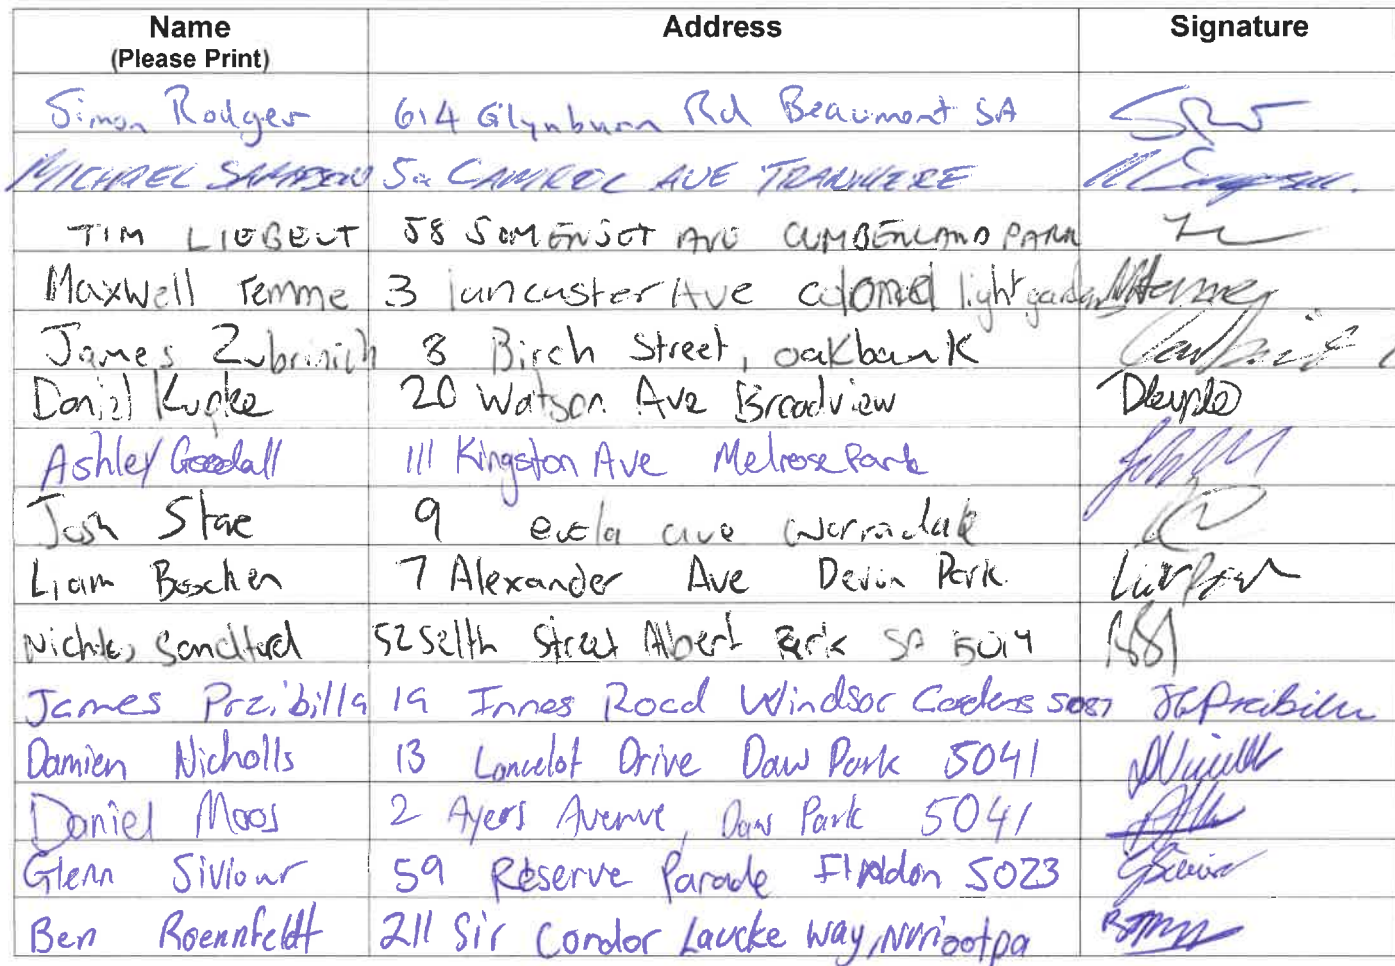 Name Address Signature
(Please Print)
Simon Rodger 614 Glynburn Rd Beaumont SA
MICHAEL 5a AVE TRANMERE
TIM LIEBELT 58 SOMERSET AVE CUMBERLAND PARK
Maxwell Temme 3 lancaster Ave colonel light gardens
James Zubrinich 8 Birch Street, oakbank
Daniel Kupke 20 Watson Ave Broadview
Ashley Goodall 111 Kingston Ave Melrose Park
Josh 9 ave Warradale
Liam Boschen 7 Alexander Ave Devon Park
Sandford 52 Street Albert Park SA 5014
James Przibilla 19 Innes Road Windsor Gardens 5087 JGPrzibilla
Damien Nicholls 13 Lancelot Drive Daw Park 5041
Daniel Moos 2 Ayers Avenue, Daw Park 5041
Glenn Siviour 59 Reserve Parade Findon 5023
Ben Roennfeldt 211 Sir Condor Laucke Way, Nuriootpa